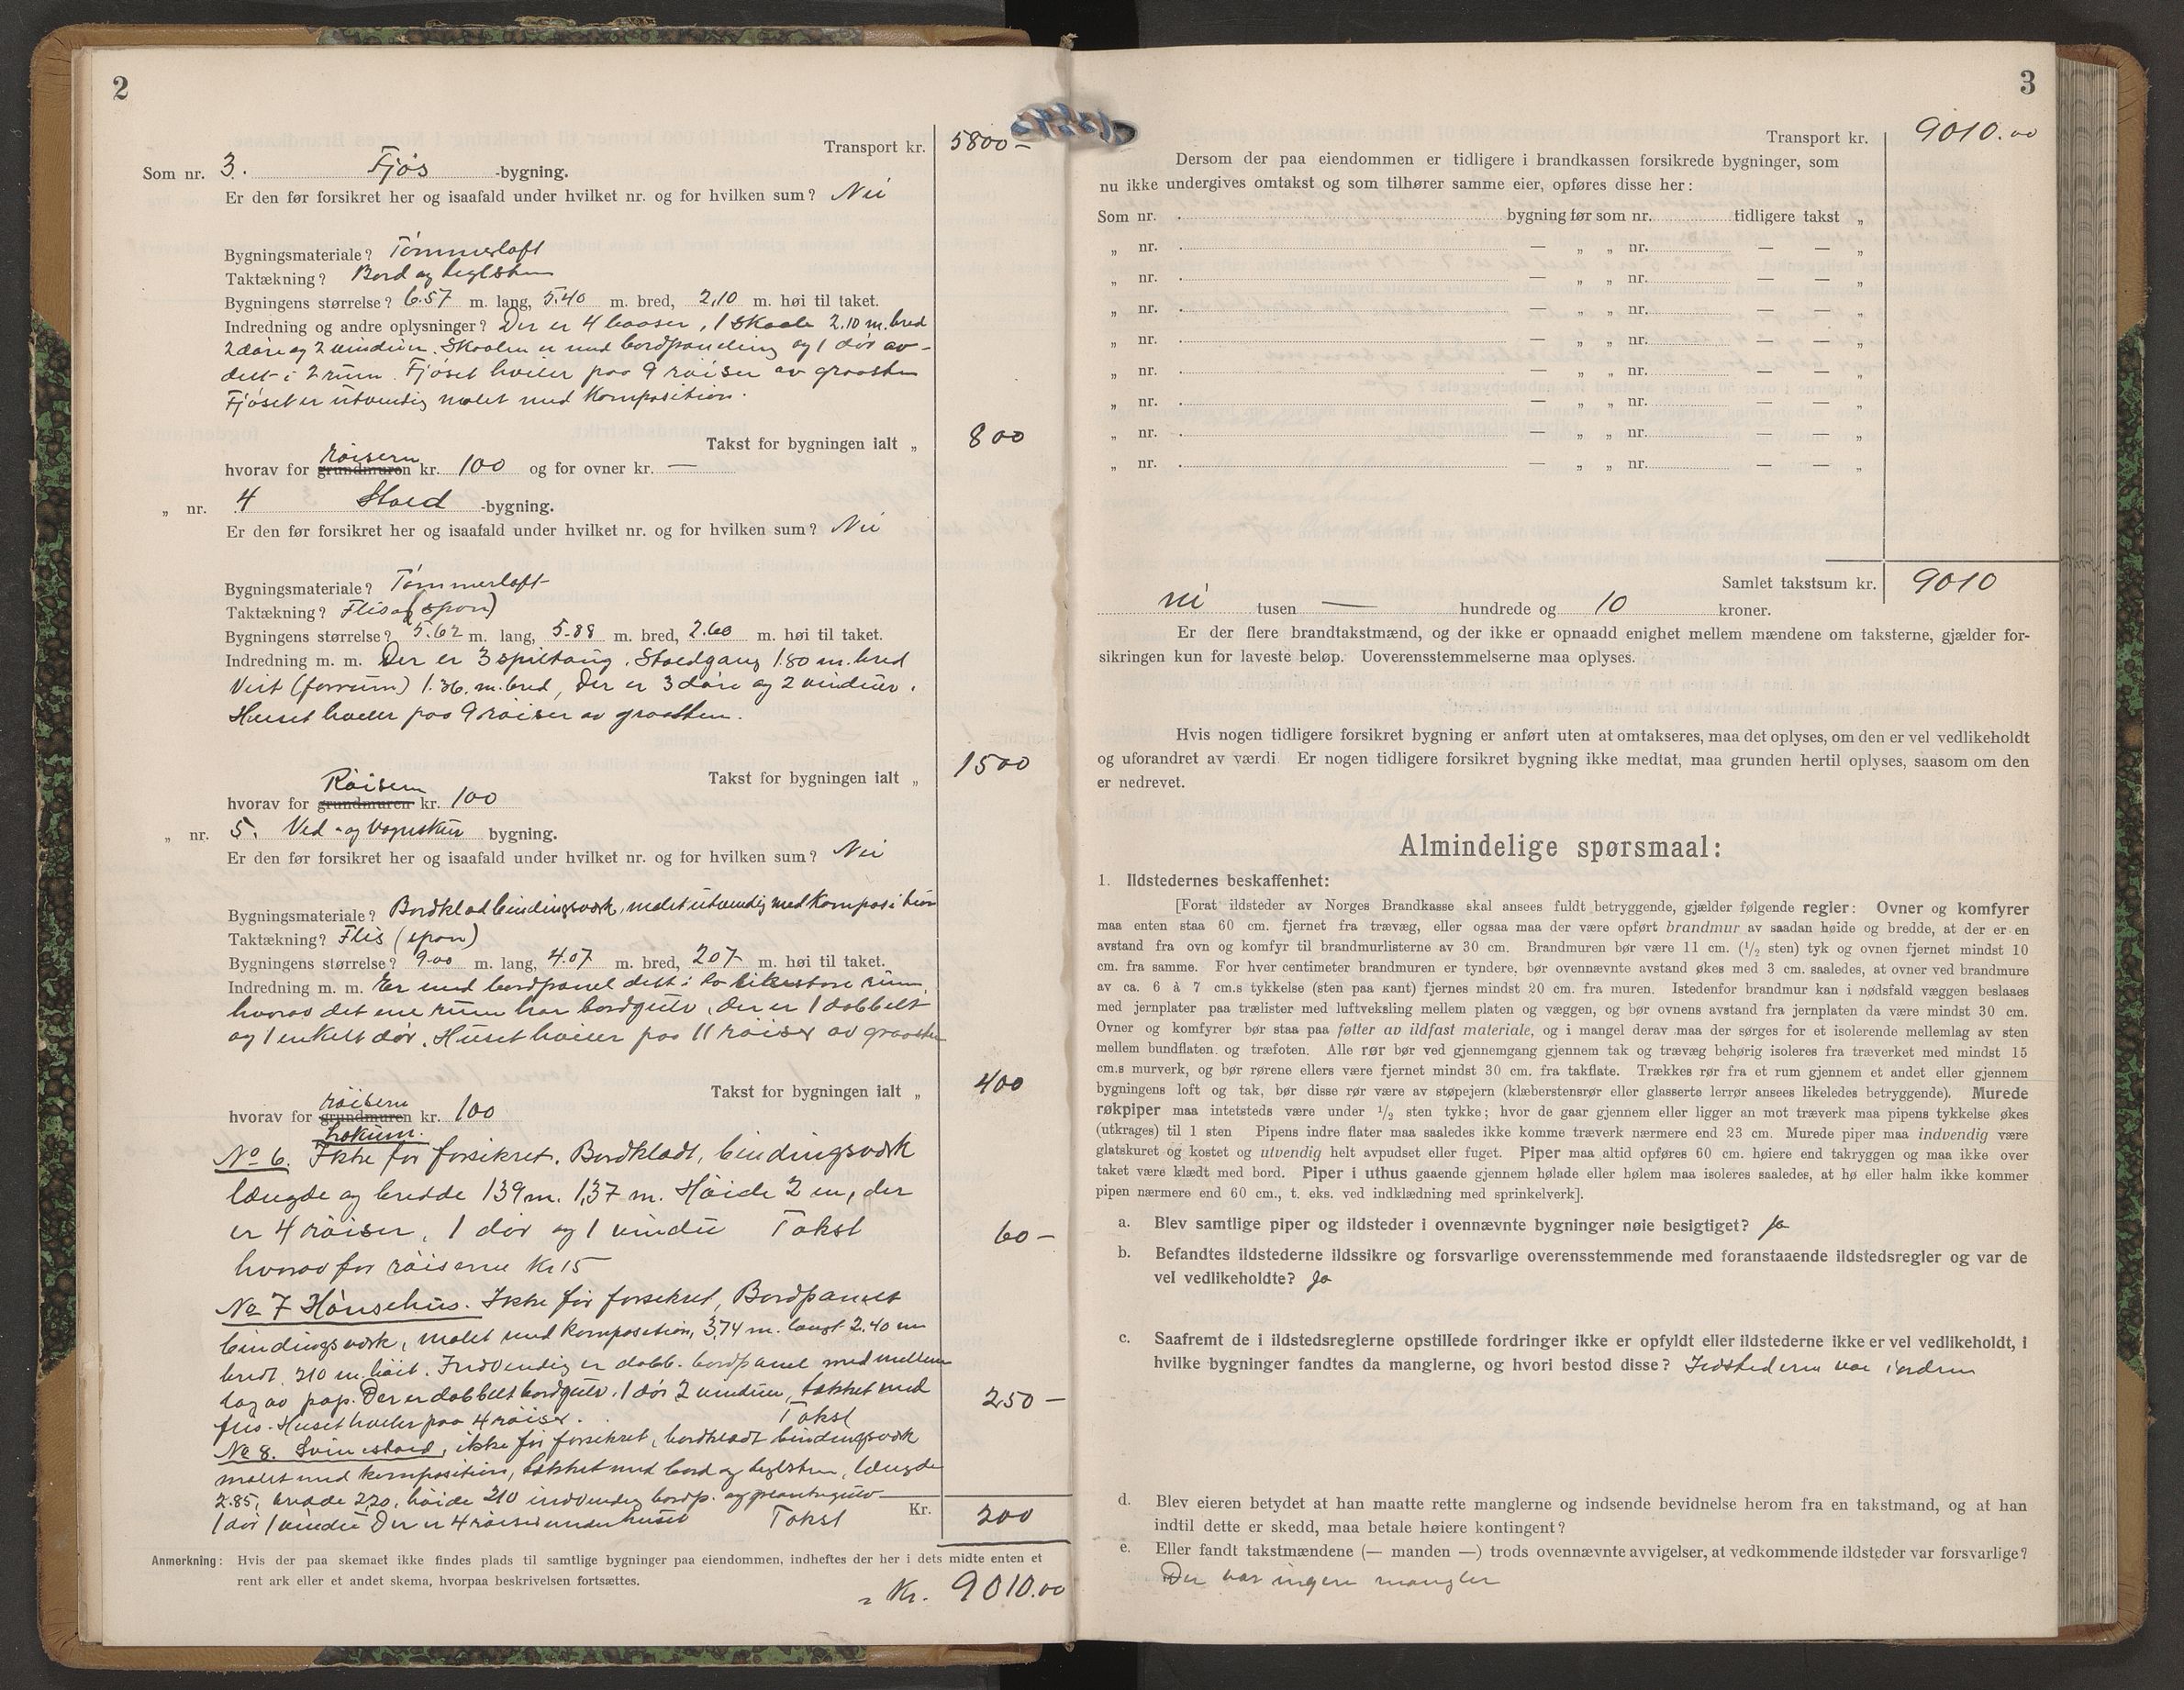 2
Transport kr. 5800 —
Som nr. 3. Fjøs -bygning.
Er den før forsikret her og isaafald under hvilket nr. og for hvilken sum? Nei
Bygningsmateriale? Tømmerloft
Taktækning? Bord og teglsten
Bygningens størrelse? 6.57 m. lang, 5.40 m. bred, 2,10 m. høi til taket.
Indredning og andre oplysninger? Der er 4 baaser, 1 skaale 2.10 m. bred
2 døre og 2 vinduer. Skaalen er med bordpaneling og 1 dør av-
delt i 2 rum. Fjøset hviler paa 9 røiser av graasten
Fjøset er utvendig malet med Komposition.
Takst for bygningen ialt „ 800
røisern
hvorav for grundmuren kr. 100 og for ovner kr. —
„ nr. 4 Stald -bygning.
Er den før forsikret her og isaafald under hvilket nr. og for hvilken sum? Nei
Bygningsmateriale? Tømmerloft
Taktækning? Flis og (spon)
Bygningens størrelse? 5.62 m. lang, 5.88 m. bred, 2.60 m. høi til taket.
Indredning m. m. Der er 3 spiltaug. Staldgang 1.80 m. bred
Veit (forrum) 1.36. m. bred, Der er 3 døre og 2 vinduer.
Huset hviler paa 9 røiser av graasten.
Takst for bygningen ialt „ 1500
Røisern
hvorav for grundmuren kr. 100
„ nr. 5. Ved- og Vognskur bygning.
Er den før forsikret her og isaafald under hvilket nr. og for hvilken sum? Nei
Bygningsmateriale? Bordklad bindingsværk, malet utvendig med Komposition
Taktækning? Flis (spon)
Bygningens størrelse? 9.00 m. lang, 4.07 m. bred, 2 07 m. høi til taket.
Indredning m. m. Er med bordpanel delt i to likestore rum,
hvorav det ene rum har bordgulv, der er 1 dobbelt
og 1 enkelt dør. Huset hviler paa 11 røiser av graasten
Takst for bygningen ialt „ 400
røisern
hvorav for grundmuren kr. 100
Lokum.
No 6. Ikke før forsikret. Bordkladt, bindingsværk
længde og bredde 1 39 m. 1,37 m. Høide 2 m, der
er 4 røiser, 1 dør og 1 vindu Takst 60 —
hvorav for røiserne Kr 15
No 7 Hønsehus. Ikke før forsikret, Bordpanelt
bindingsværk, malet med komposition, 3,74 m. langt 2.40 m
bredt, 210 m. høit. Indvendig er dobb. bordpanel med mellem
lag av pap. Der er dobbelt bordgulv. 1 dør 2 vinduer, tækket med
flis. Huset hviler paa 4 røiser. Takst 250 —
No 8. Svinestald, ikke før forsikret, bordkladt bindingsværk
malet med komposition, tækket med bord og teglsten, længde
2.85, bredde 2,20, høide 210 indvendig bordp. og plankegulv
1 dør 1 vindu Der er 4 røiser under huset Takst Kr. 200
Anmerkning: Hvis der paa skemaet ikke findes plads til samtlige bygninger paa eiendommen, indheftes der her i dets midte enten et
rent ark eller et andet skema, hvorpaa beskrivelsen fortsættes.
Kr. 9010.00
3
Transport kr. 9010.00
Dersom der paa eiendommen er tidligere i brandkassen forsikrede bygninger, som
nu ikke undergives omtakst og som tilhører samme eier, opføres disse her:
Som nr. bygning før som nr. tidligere takst „
„ nr. — „ „ nr. — — „
„ nr. — „ „ nr. — — „
„ nr. — „ „ nr. — — „
„ nr. — „ „ nr. — — „
„ nr. — „ „ nr. — — „
„ nr. — „ „ nr. — — „
„ nr. — „ „ nr. — — „
„ nr. — „ „ nr. — — „
Samlet takstsum kr. 9010
ni tusen — hundrede og 10 kroner.
Er der flere brandtakstmænd, og der ikke er opnaadd enighet mellem mændene om taksterne, gjælder for-
sikringen kun for laveste beløp. Uoverensstemmelserne maa oplyses.
Hvis nogen tidligere forsikret bygning er anført uten at omtakseres, maa det oplyses, om den er vel vedlikeholdt
og uforandret av værdi Er nogen tidligere forsikret bygning ikke medtat, maa grunden hertil oplyses, saasom om den
er nedrevet.
Almindelige spørsmaal:
1. Ildstedernes beskaffenhet:
[Forat ildsteder av Norges Brandkasse skal ansees fuldt betryggende, gjælder følgende regler: Ovner og komfyrer
maa enten staa 60 cm. fjernet fra trævæg, eller ogsaa maa der være opført brandmur av saadan høide og bredde, at der er en
avstand fra ovn og komfyr til brandmurlisterne av 30 cm. Brandmuren bør være 11 cm. (1/2 sten) tyk og ovnen fjernet mindst 10
cm. fra samme. For hver centimeter brandmuren er tyndere, bør ovennævnte avstand økes med 3 cm. saaledes, at ovner ved brandmure
av ca. 6 à 7 cm.s tykkelse (sten paa kant) fjernes mindst 20 cm. fra muren. Istedenfor brandmur kan i nødsfald væggen beslaaes
med jernplater paa trælister med luftveksling mellem platen og væggen, og bør ovnens avstand fra jernplaten da være mindst 30 cm.
Ovner og komfyrer bør staa paa føtter av ildfast materiale, og i mangel derav maa der sørges for et isolerende mellemlag av sten
mellem bundflaten og træfoten. Alle rør bør ved gjennemgang gjennem tak og trævæg behørig isoleres fra træverket med mindst 15
cm.s murverk, og bør rørene ellers være fjernet mindst 30 cm. fra takflate. Trækkes rør fra et rum gjennem et andet eller gjennem
bygningens loft og tak, bør disse rør være av støpejern (klæberstensrør eller glasserte lerrør ansees likeledes betryggende). Murede
røkpiper maa intetsteds være under 1/2 sten tykke; hvor de gaar gjennem eller ligger an mot træverk maa pipens tykkelse økes
(utkrages) til 1 sten Pipens indre flater maa saaledes ikke komme træverk nærmere end 23 cm. Murede piper maa indvendig være
glatskuret og kostet og utvendig helt avpudset eller fuget. Piper maa altid opføres 60 cm. høiere end takryggen og maa ikke over
taket være klædt med bord. Piper i uthus gaaende gjennem hølade eller hølem maa isoleres saaledes, at hø eller halm ikke kommer
pipen nærmere end 60 cm., t. eks. ved indklædning med sprinkelverk].
a. Blev samtlige piper og ildsteder i ovennævnte bygninger nøie besigtiget? Ja
b. Befandtes ildstederne ildssikre og forsvarlige overensstemmende med foranstaaende ildstedsregler og var de
vel vedlikeholdte? Ja
c. Saafremt de i ildstedsreglerne opstillede fordringer ikke er opfyldt eller ildstederne ikke er vel vedlikeholdt, i
hvilke bygninger fandtes da manglerne, og hvori bestod disse? Ildstederne var i orden
d. Blev eieren betydet at han maatte rette manglerne og indsende bevidnelse herom fra en takstmand, og at han
indtil dette er skedd, maa betale høiere kontingent?
e. Eller fandt takstmændene (— manden —) trods ovennævnte avvigelser, at vedkommende ildsteder var forsvarlige?
Der var ingen mangler